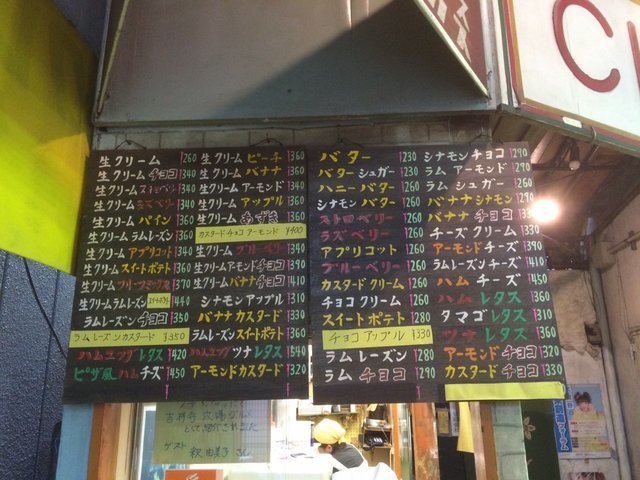 生クリーム ¥260
生クリーム チョコ ¥340
生クリーム ¥340
生クリーム ラズベリー ¥340
生クリーム パイン ¥360
生クリーム ラムレーズン ¥360
生クリーム アプリコット ¥340
生クリーム スイートポテト ¥360
生クリーム ブルーツミックス ¥370
生クリームラムレーズン スイートポテト ¥440
ラムレーズン チョコ ¥350
ラムレーズンカスタード ¥350
ハムエッグレタス ¥420
ピザ風ハムチーズ ¥450
生クリーム ピーチ ¥360
生クリーム バナナ ¥360
生クリーム アーモンド ¥340
生クリーム アップル ¥360
生クリーム あずき ¥360
カスタードチョコアーモンド ¥400
生クリーム ブルーベリー ¥340
生クリームアーモンドチョコ ¥390
生クリームバナナチョコ ¥410
シナモンアップル ¥310
バナナカスタード ¥330
ラムレーズンスイートポテト ¥360
ハムエッグ ツナレタス ¥540
アーモンドカスタード ¥320
バター ¥230
バターシュガー ¥230
ハニーバター ¥260
シナモンバター ¥260
ストロベリー ¥260
ラズベリー ¥260
アプリコット ¥260
ブルーベリー ¥260
カスタードクリーム ¥260
チョコクリーム ¥260
スイートポテト ¥280
チョコアップル ¥330
ラムレーズン ¥280
ラムチョコ ¥290
シナモンチョコ ¥290
ラムアーモンド ¥290
ラムシュガー ¥260
バナナシナモン ¥290
バナナチョコ ¥330
チーズクリーム ¥330
アーモンドチーズ ¥390
ラムレーズンチーズ ¥410
ハムチーズ ¥450
ハムレタス ¥360
タマゴレタス ¥310
ツナレタス ¥360
アーモンドチョコ ¥320
カスタードチョコ ¥330
吉祥寺
として紹介されました
ゲスト
釈由美子さん